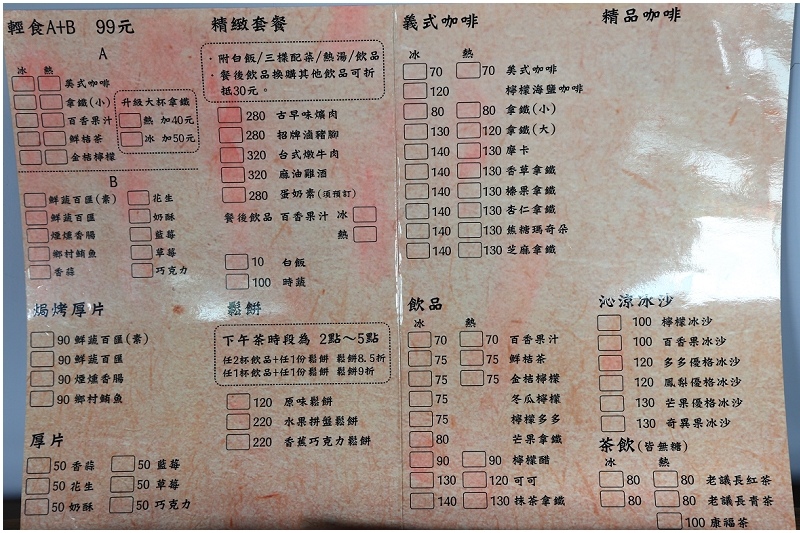 輕食A+B 99元
A
冰 熱
美式咖啡
拿鐵(小)
百香果汁
鮮桔茶
金桔檸檬
升級大杯拿鐵
熱 加40元
冰 加50元
B
鮮蔬百匯(素) 花生
鮮蔬百匯 奶酥
煙燻香腸 藍莓
鄉村鮪魚 草莓
香蒜 巧克力
焗烤厚片
90 鮮蔬百匯(素)
90 鮮蔬百匯
90 煙燻香腸
90 鄉村鮪魚
厚片
50 香蒜 50 藍莓
50 花生 50 草莓
50 奶酥 50 巧克力
精緻套餐
·附白飯/三樣配菜/熱湯/飲品
·餐後飲品換購其他飲品可折
抵30元。
280 古早味爌肉
280 招牌滷豬腳
320 台式燉牛肉
320 麻油雞酒
280 蛋奶素(須預訂)
餐後飲品 百香果汁 冰
熱
10 白飯
100 時蔬
鬆餅
下午茶時段為 2點~5點
任2杯飲品+任1份鬆餅 鬆餅8.5折
任1杯飲品+任1份鬆餅 鬆餅9折
120 原味鬆餅
220 水果拼盤鬆餅
220 香蕉巧克力鬆餅
義式咖啡
冰 熱
70 70 美式咖啡
120 檸檬海鹽咖啡
80 80 拿鐵(小)
130 120 拿鐵(大)
140 130 摩卡
140 130 香草拿鐵
140 130 榛果拿鐵
140 130 杏仁拿鐵
140 130 焦糖瑪奇朵
140 130 芝麻拿鐵
飲品
冰 熱
70 70 百香果汁
75 75 鮮桔茶
75 75 金桔檸檬
75 冬瓜檸檬
75 檸檬多多
80 芒果拿鐵
90 90 檸檬醋
130 120 可可
140 130 抹茶拿鐵
精品咖啡
沁涼冰沙
100 檸檬冰沙
100 百香果冰沙
120 多多優格冰沙
120 鳳梨優格冰沙
130 芒果優格冰沙
130 奇異果冰沙
茶飲(皆無糖)
冰 熱
80 80 老議長紅茶
80 80 老議長青茶
100 康福茶